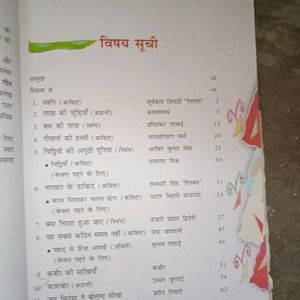 विषय सूची
आमुख iii
शिक्षक से
1. ध्वनि (कविता) सूर्यकांत त्रिपाठी 'निराला' 1
2. लाख की चूड़ियाँ (कहानी) कामतानाथ 5
3. बस की यात्रा (व्यंग्य) हरिशंकर परसाई 13
4. दीवानों की हस्ती (कविता) भगवतीचरण वर्मा 20
5. चिट्ठियों की अनूठी दुनिया (निबंध) अरविंद कुमार सिंह
• चिट्ठियाँ (कविता) रामदरश मिश्र
(केवल पढ़ने के लिए)
6. भगवान के डाकिए (कविता) रामधारी सिंह 'दिनकर'
• कदम मिलाकर चलना होगा (कविता) अटल बिहारी वाजपेयी
(केवल पढ़ने के लिए)
7. क्या निराश हुआ जाए (निबंध) हजारी प्रसाद द्विवेदी
8. यह सबसे कठिन समय नहीं (कविता) जया जादवानी
• पहाड़ से ऊँचा आदमी (जीवनी) सुभाष गाताडे
(केवल पढ़ने के लिए)
9. कबीर की साखियाँ कबीर
10. कामचोर (कहानी) इस्मत चुगताई 54
जब सिनेमा ने बोलना सीखा प्रदीप तिवारी 62